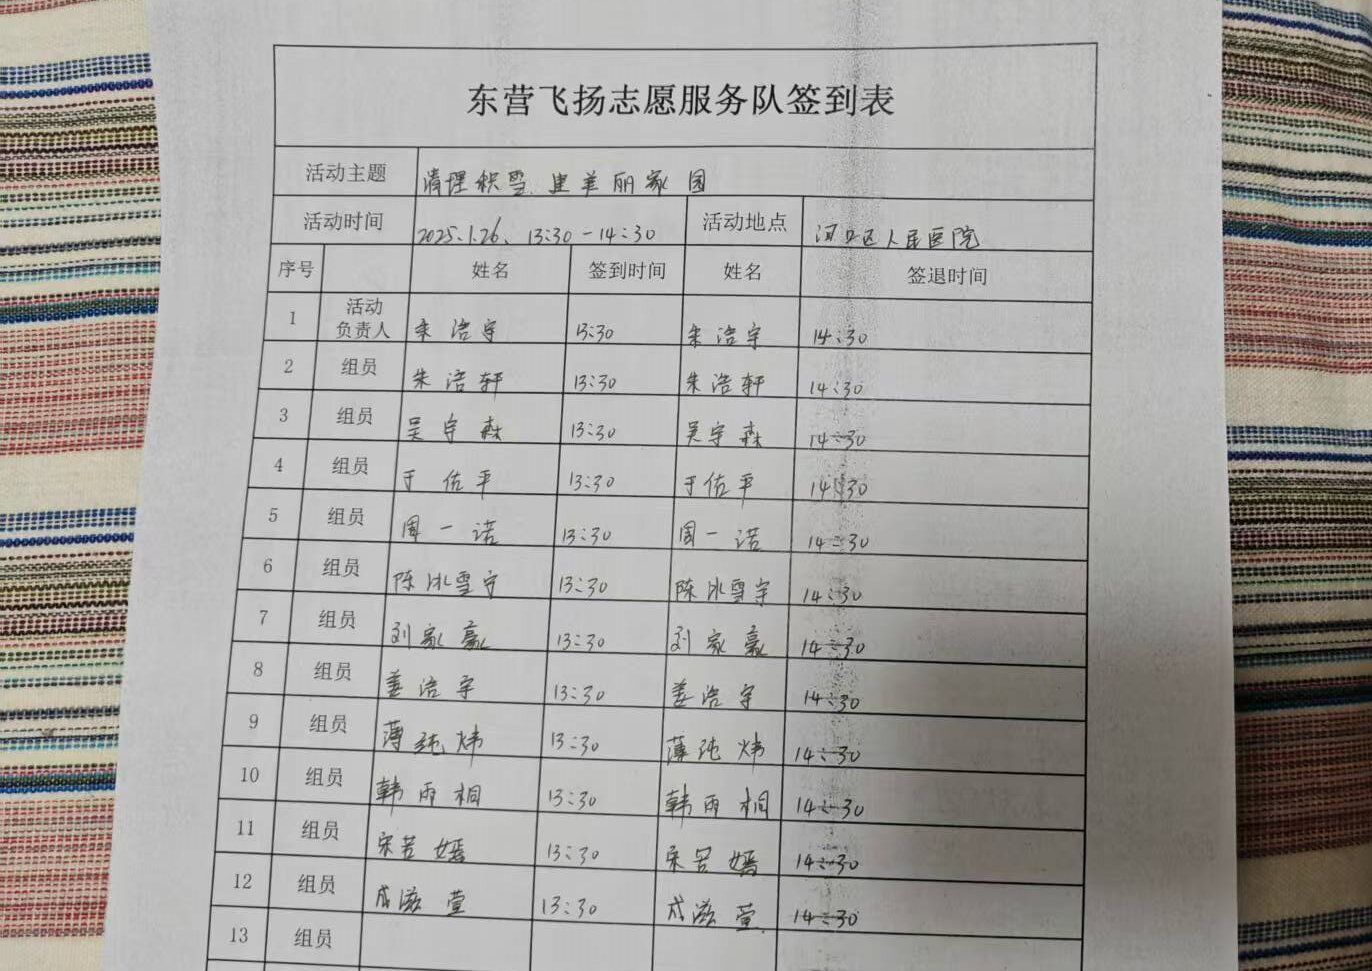 东营飞扬志愿服务队签到表
活动主题 清理积雪、建美丽家园
活动时间 2025.1.26、13:30-14:30 活动地点 河口区人民医院
序号 姓名 签到时间 姓名 签退时间
1 活动负责人 朱浩宇 13:30 朱浩宇 14:30
2 组员 朱浩轩 13:30 朱浩轩 14:30
3 组员 吴宇森 13:30 吴宇森 14:30
4 组员 于佑平 13:30 于佑平 14:30
5 组员 周一诺 13:30 周一诺 14:30
6 组员 陈冰雪宇 13:30 陈冰雪宇 14:30
7 组员 刘家豪 13:30 刘家豪 14:30
8 组员 姜浩宇 13:30 姜浩宇 14:30
9 组员 薄纯炜 13:30 薄纯炜 14:30
10 组员 韩雨桐 13:30 韩雨桐 14:30
11 组员 宋若嫣 13:30 宋若嫣 14:30
12 组员 成滋萱 13:30 成滋萱 14:30
13 组员